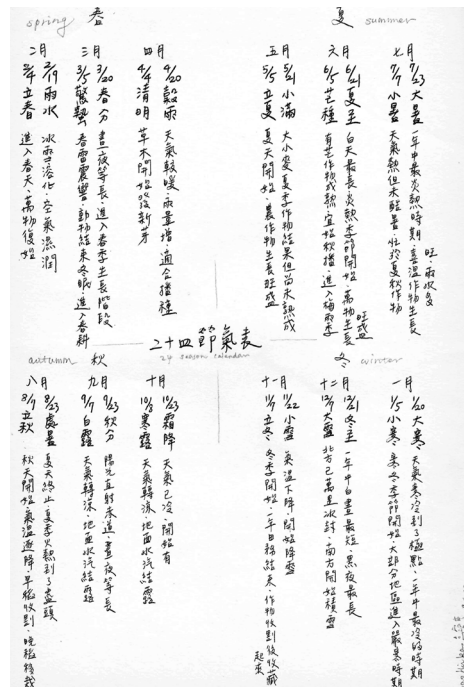 spring 春
二月
2/4 立春 進入春天・萬物復始
2/19 雨水 冰雪溶化・空氣濕潤
三月
3/5 驚蟄 春雷震響・動物結束冬眠・進入春耕
3/20 春分 晝夜等長・進入春季生長階段
四月
4/4 清明 草木開始發新芽
4/20 穀雨 天氣較暖・雨量增・適合播種
夏 summer
五月
5/5 立夏 夏天開始・農作物生長旺盛
5/21 小滿 大小麥夏季作物結果但尚未熟成
六月
6/5 芒種 有芒作物成熟・宜始秋播・進入梅雨季
6/21 夏至 白天最長・炎熱季節開始・萬物生長旺盛
七月
7/7 小暑 天氣熱但未酷暑・忙於夏秋作物
7/23 大暑 一年中最炎熱時期・喜溫作物生長旺 雨水多
二十四節氣表
24 season calendar
autumn 秋
八月
8/7 立秋 秋天開始・氣溫逐降・早稻收割・晚稻移栽
8/23 處暑 夏天終止・夏季火熱到了盡頭
九月
9/7 白露 天氣轉涼・地面水汽結露
9/23 秋分 陽光直射赤道・晝夜等長
十月
10/8 寒露 天氣轉涼・地面水汽結露
10/23 霜降 天氣已冷・開始有
冬 winter
十一月
11/7 立冬 冬季開始・一年田務結束・作物收割後收藏起來
11/22 小雪 氣溫下降・開始降雪
十二月
12/7 大雪 北方已萬里冰封・南方開始積雪
12/21 冬至 一年中白晝最短・黑夜最長
一月
1/5 小寒 寒冬季節開始・大部分地區進入嚴寒時期
1/20 大寒 天氣寒冷到了極點・一年中最冷的時期